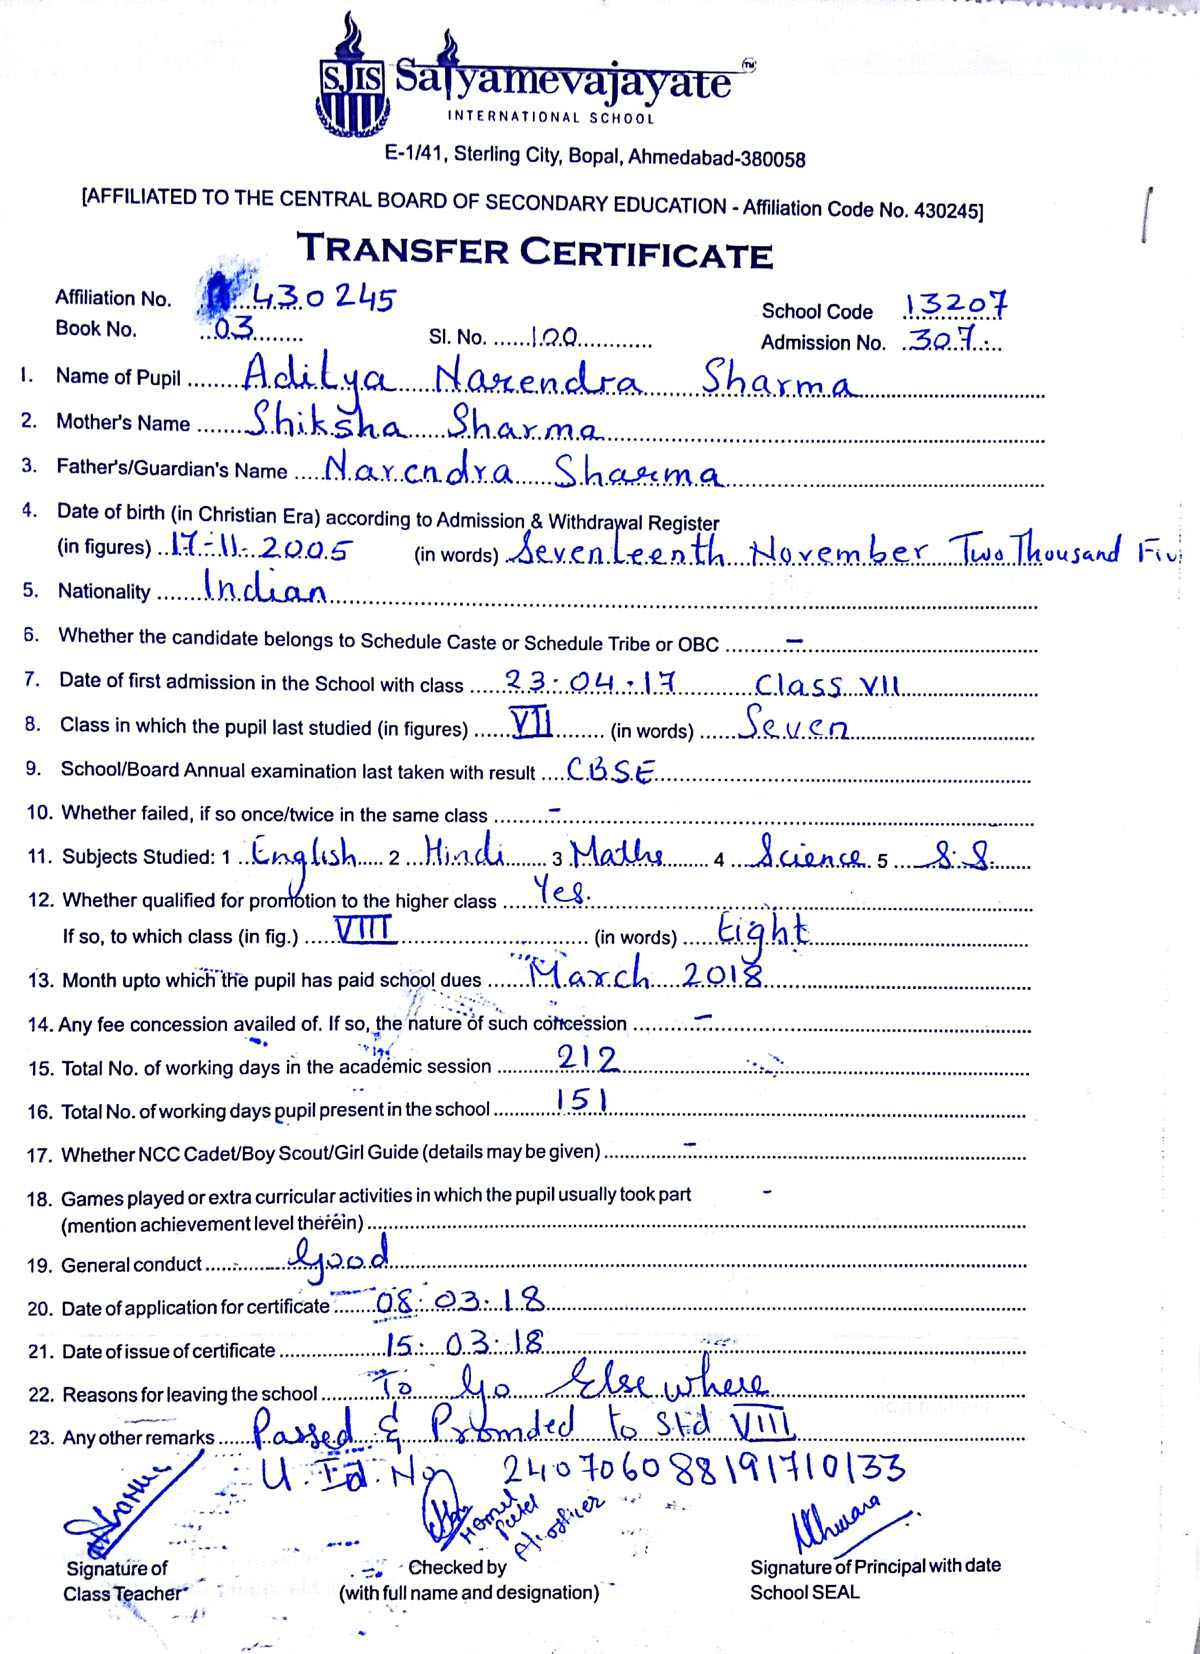 SJIS Satyamevajayate TM
INTERNATIONAL SCHOOL
E-1/41, Sterling City, Bopal, Ahmedabad-380058
[AFFILIATED TO THE CENTRAL BOARD OF SECONDARY EDUCATION - Affiliation Code No. 430245]
TRANSFER CERTIFICATE
Affiliation No. 430245 School Code 13207
Book No. 03 Sl. No. 100 Admission No. 307
1. Name of Pupil Aditya Narendra Sharma
2. Mother's Name Shiksha Sharma
3. Father's/Guardian's Name Narendra Sharma
4. Date of birth (in Christian Era) according to Admission & Withdrawal Register
(in figures) 17-11-2005 (in words) Seventeenth November Two Thousand Fiv
5. Nationality Indian
6. Whether the candidate belongs to Schedule Caste or Schedule Tribe or OBC -
7. Date of first admission in the School with class 23.04.17 Class VII
8. Class in which the pupil last studied (in figures) VII (in words) Seven
9. School/Board Annual examination last taken with result CBSE
10. Whether failed, if so once/twice in the same class -
11. Subjects Studied: 1 English 2 Hindi 3 Maths 4 Science 5 S.S.
12. Whether qualified for promotion to the higher class Yes.
If so, to which class (in fig.) VIII (in words) Eight
13. Month upto which the pupil has paid school dues March 2018
14. Any fee concession availed of. If so, the nature of such concession -
15. Total No. of working days in the academic session 212
16. Total No. of working days pupil present in the school 151
17. Whether NCC Cadet/Boy Scout/Girl Guide (details may be given) -
18. Games played or extra curricular activities in which the pupil usually took part -
(mention achievement level therein)
19. General conduct Good
20. Date of application for certificate 08.03.18
21. Date of issue of certificate 15.03.18
22. Reasons for leaving the school To Go Elsewhere
23. Any other remarks Passed & Promoted to Std VIII
U. Id. No 240706088191710133
Sharma
Signature of Checked by Signature of Principal with date
Class Teacher (with full name and designation) School SEAL